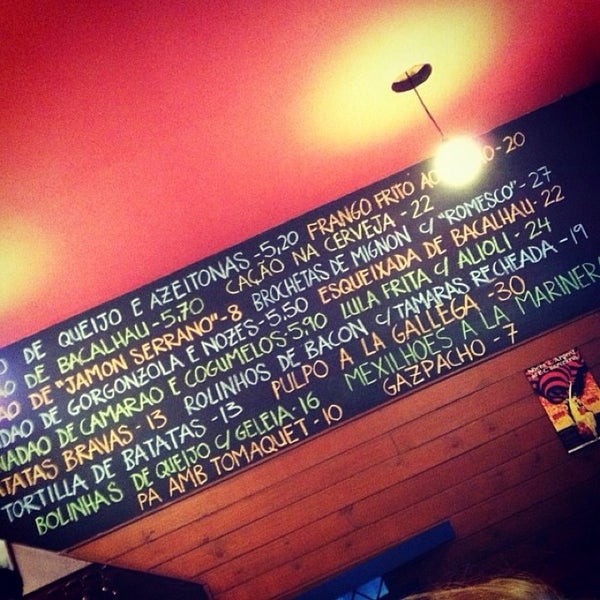 DE QUEIJO E AZEITONAS - 5,20
DE BACALHAU - 5,70
DE "JAMON SERRANO" - 8
DE GORGONZOLA E NOZES - 5,50
DE CAMARAO E COGUMELOS 5,90
BRAVAS - 13
TORTILLA DE BATATAS - 13
BOLINHAS DE QUEIJO C/ GELEIA - 16
PA AMB TOMAQUET - 10
FRANGO FRITO - 20
CAÇÃO NA CERVEJA - 22
BROCHETAS DE MIGNON C/ "ROMESCO" - 27
ESQUEIXADA DE BACALHAU - 22
LULA FRITA C/ ALIOLI - 24
ROLINHOS DE BACON C/ TAMARAS RECHEADA - 19
PULPO A LA GALLEGA - 30
MEXILHÕES A LA MARINERA
GAZPACHO - 7